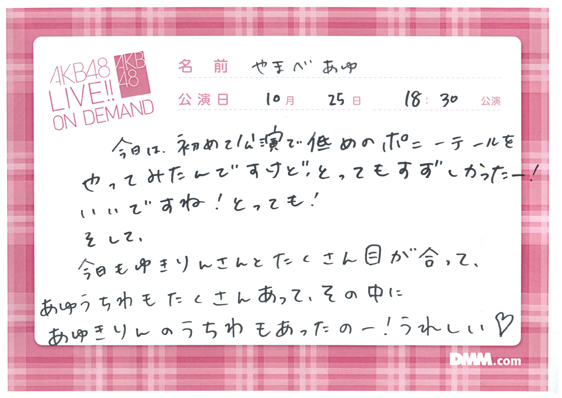 AKB48
LIVE!!
ON DEMAND
AKB
48
名前 やまべあゆ
公演日 10月 25日 18:30 公演
今日は、初めて公演で低めのポニーテールを
やってみたんですけど、とってもすずしかったー!
いいですね!とっても!
そして、
今日もゆきりんさんとたくさん目が合って、
あゆうちわもたくさんあって、その中に
あゆきりんのうちわもあったのー!うれしい♡
DMM.com